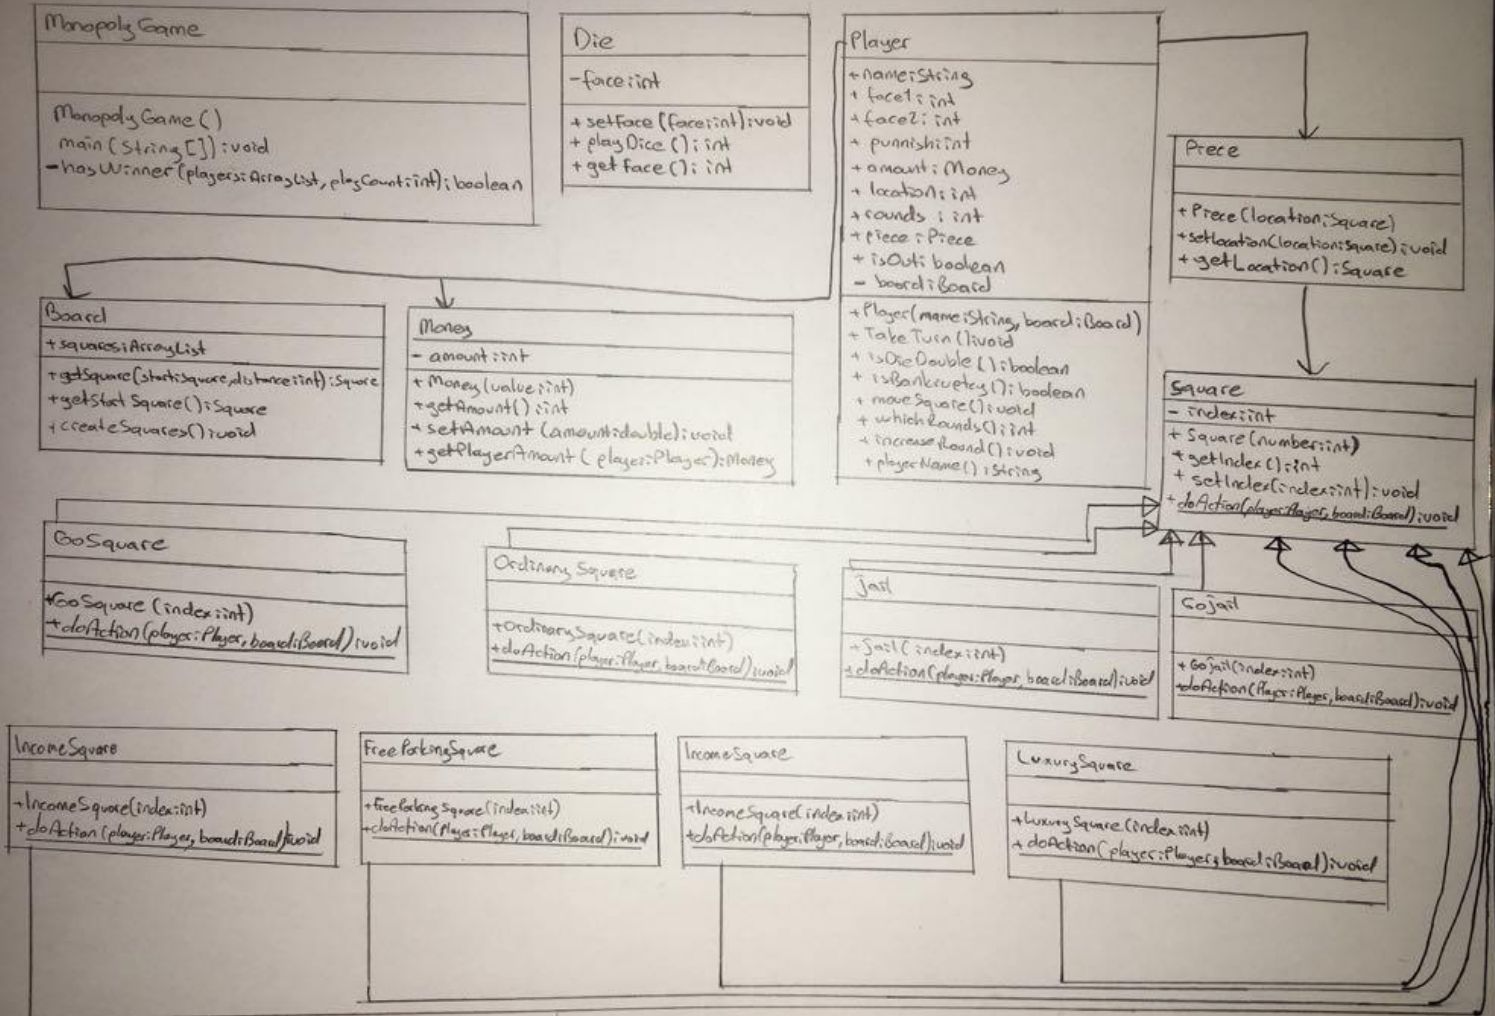 MonopolyGame
MonopolyGame()
main(String[]):void
-hasWinner(players:ArrayList, playCount:int):boolean
Die
-face:int
+setFace(face:int):void
+playDice():int
+getFace():int
Player
+name:String
+face1:int
+face2:int
+punnish:int
+amount:Money
+location:int
+rounds:int
+piece:Piece
+isOut:boolean
-board:Board
+Player(name:String, board:Board)
+TakeTurn():void
+isDieDouble():boolean
+isBankruptcy():boolean
+moveSquare():void
+whichRounds():int
+increaseRound():void
+playerName():String
Piece
+Piece(location:Square)
+setLocation(location:Square):void
+getLocation():Square
Board
+squares:ArrayList
+getSquare(start:Square,distance:int):Square
+getStartSquare():Square
+createSquares():void
Money
-amount:int
+Money(value:int)
+getAmount():int
+setAmount(amount:double):void
+getPlayerAmount(player:Player):Money
Square
-index:int
+Square(number:int)
+getIndex():int
+setIndex(index:int):void
+doAction(player:Player, board:Board):void
GoSquare
+GoSquare(index:int)
+doAction(player:Player, board:Board):void
OrdinarySquare
+OrdinarySquare(index:int)
+doAction(player:Player, board:Board):void
Jail
+Jail(index:int)
+doAction(player:Player, board:Board):void
GoJail
+GoJail(index:int)
+doAction(Player:Player, board:Board):void
IncomeSquare
+IncomeSquare(index:int)
+doAction(player:Player, board:Board):void
FreeParkingSquare
+FreeParkingSquare(index:int)
+doAction(Player:Player, board:Board):void
IncomeSquare
+IncomeSquare(index:int)
+doAction(player:Player, board:Board):void
LuxurySquare
+LuxurySquare(index:int)
+doAction(player:Player, board:Board):void